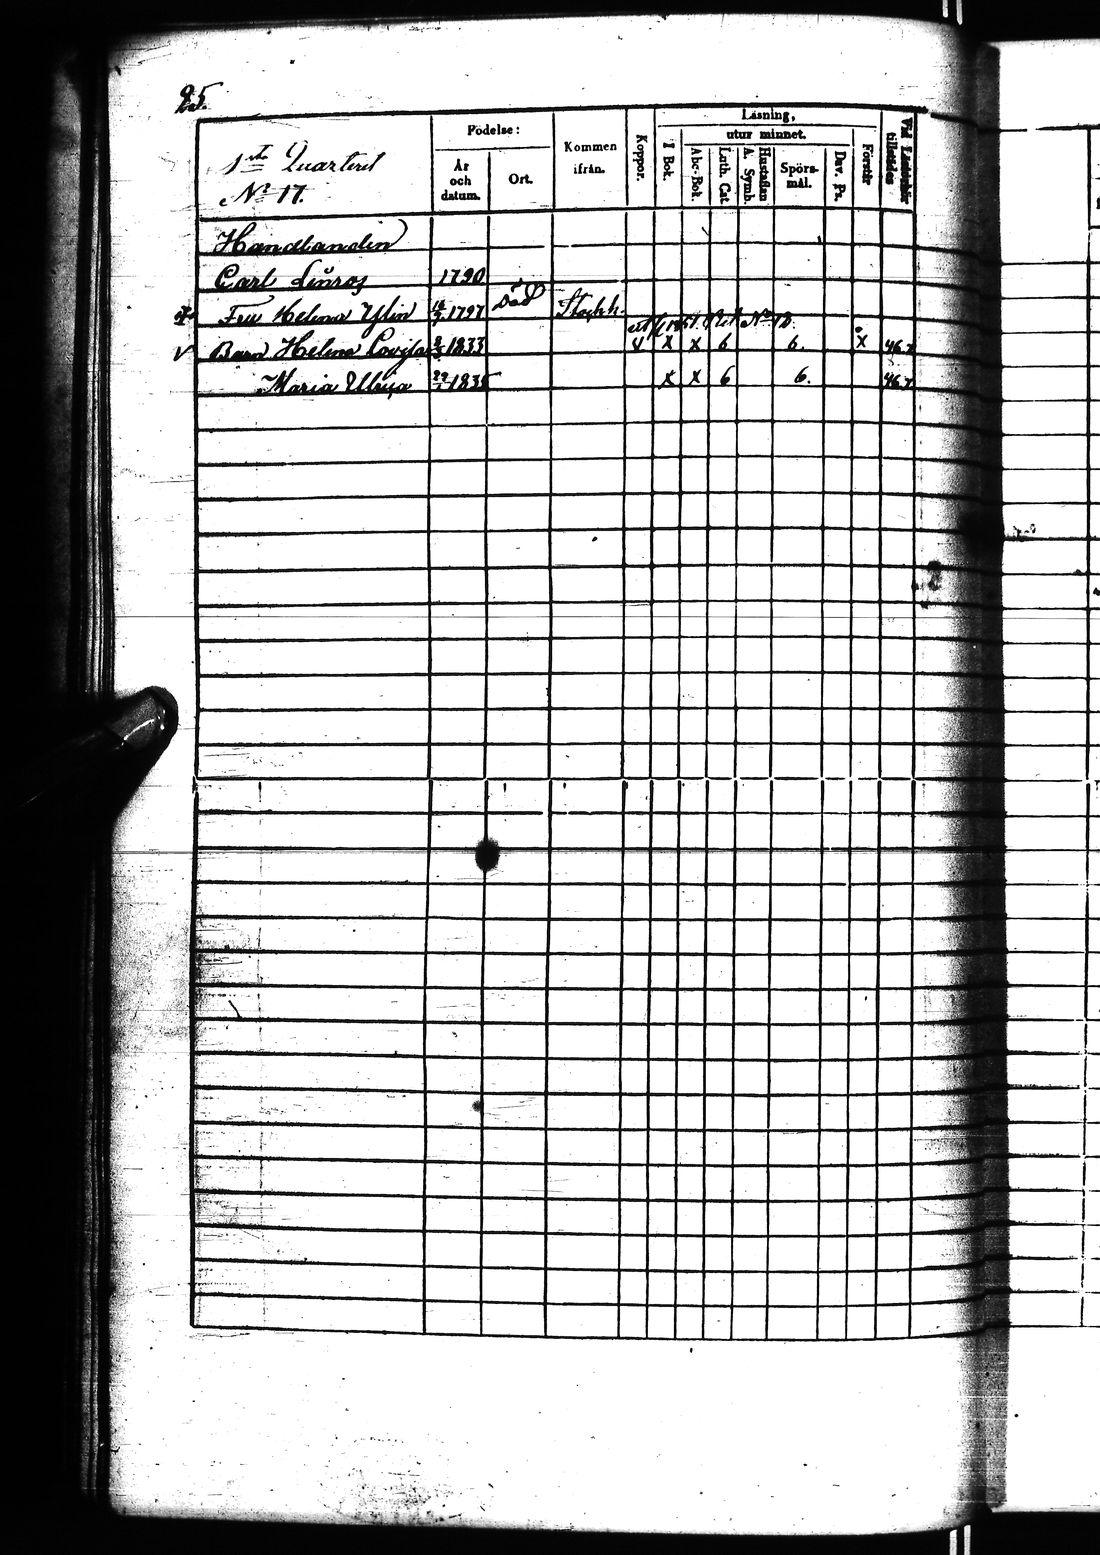 25.
1sta Quarteret
No 17.
Födelse:
År och datum.
Ort.
Kommen ifrån.
Koppor.
Läsning,
utur minnet.
I Bok.
Abc-Bok.
Luth. Cat
A. Symb.
Hustaflan
Spörs-mål.
Dav. Ps.
Förstår
Vid Läseförhör tillstädes
Handlanden
Carl 1790
Fru Helena Ylin 1797 död Stockh.
No 18.
V Barn Helena Lovisa 1833 V X X 6 6. X 46.
Maria Ulrica 1835 X X 6 6. 46.